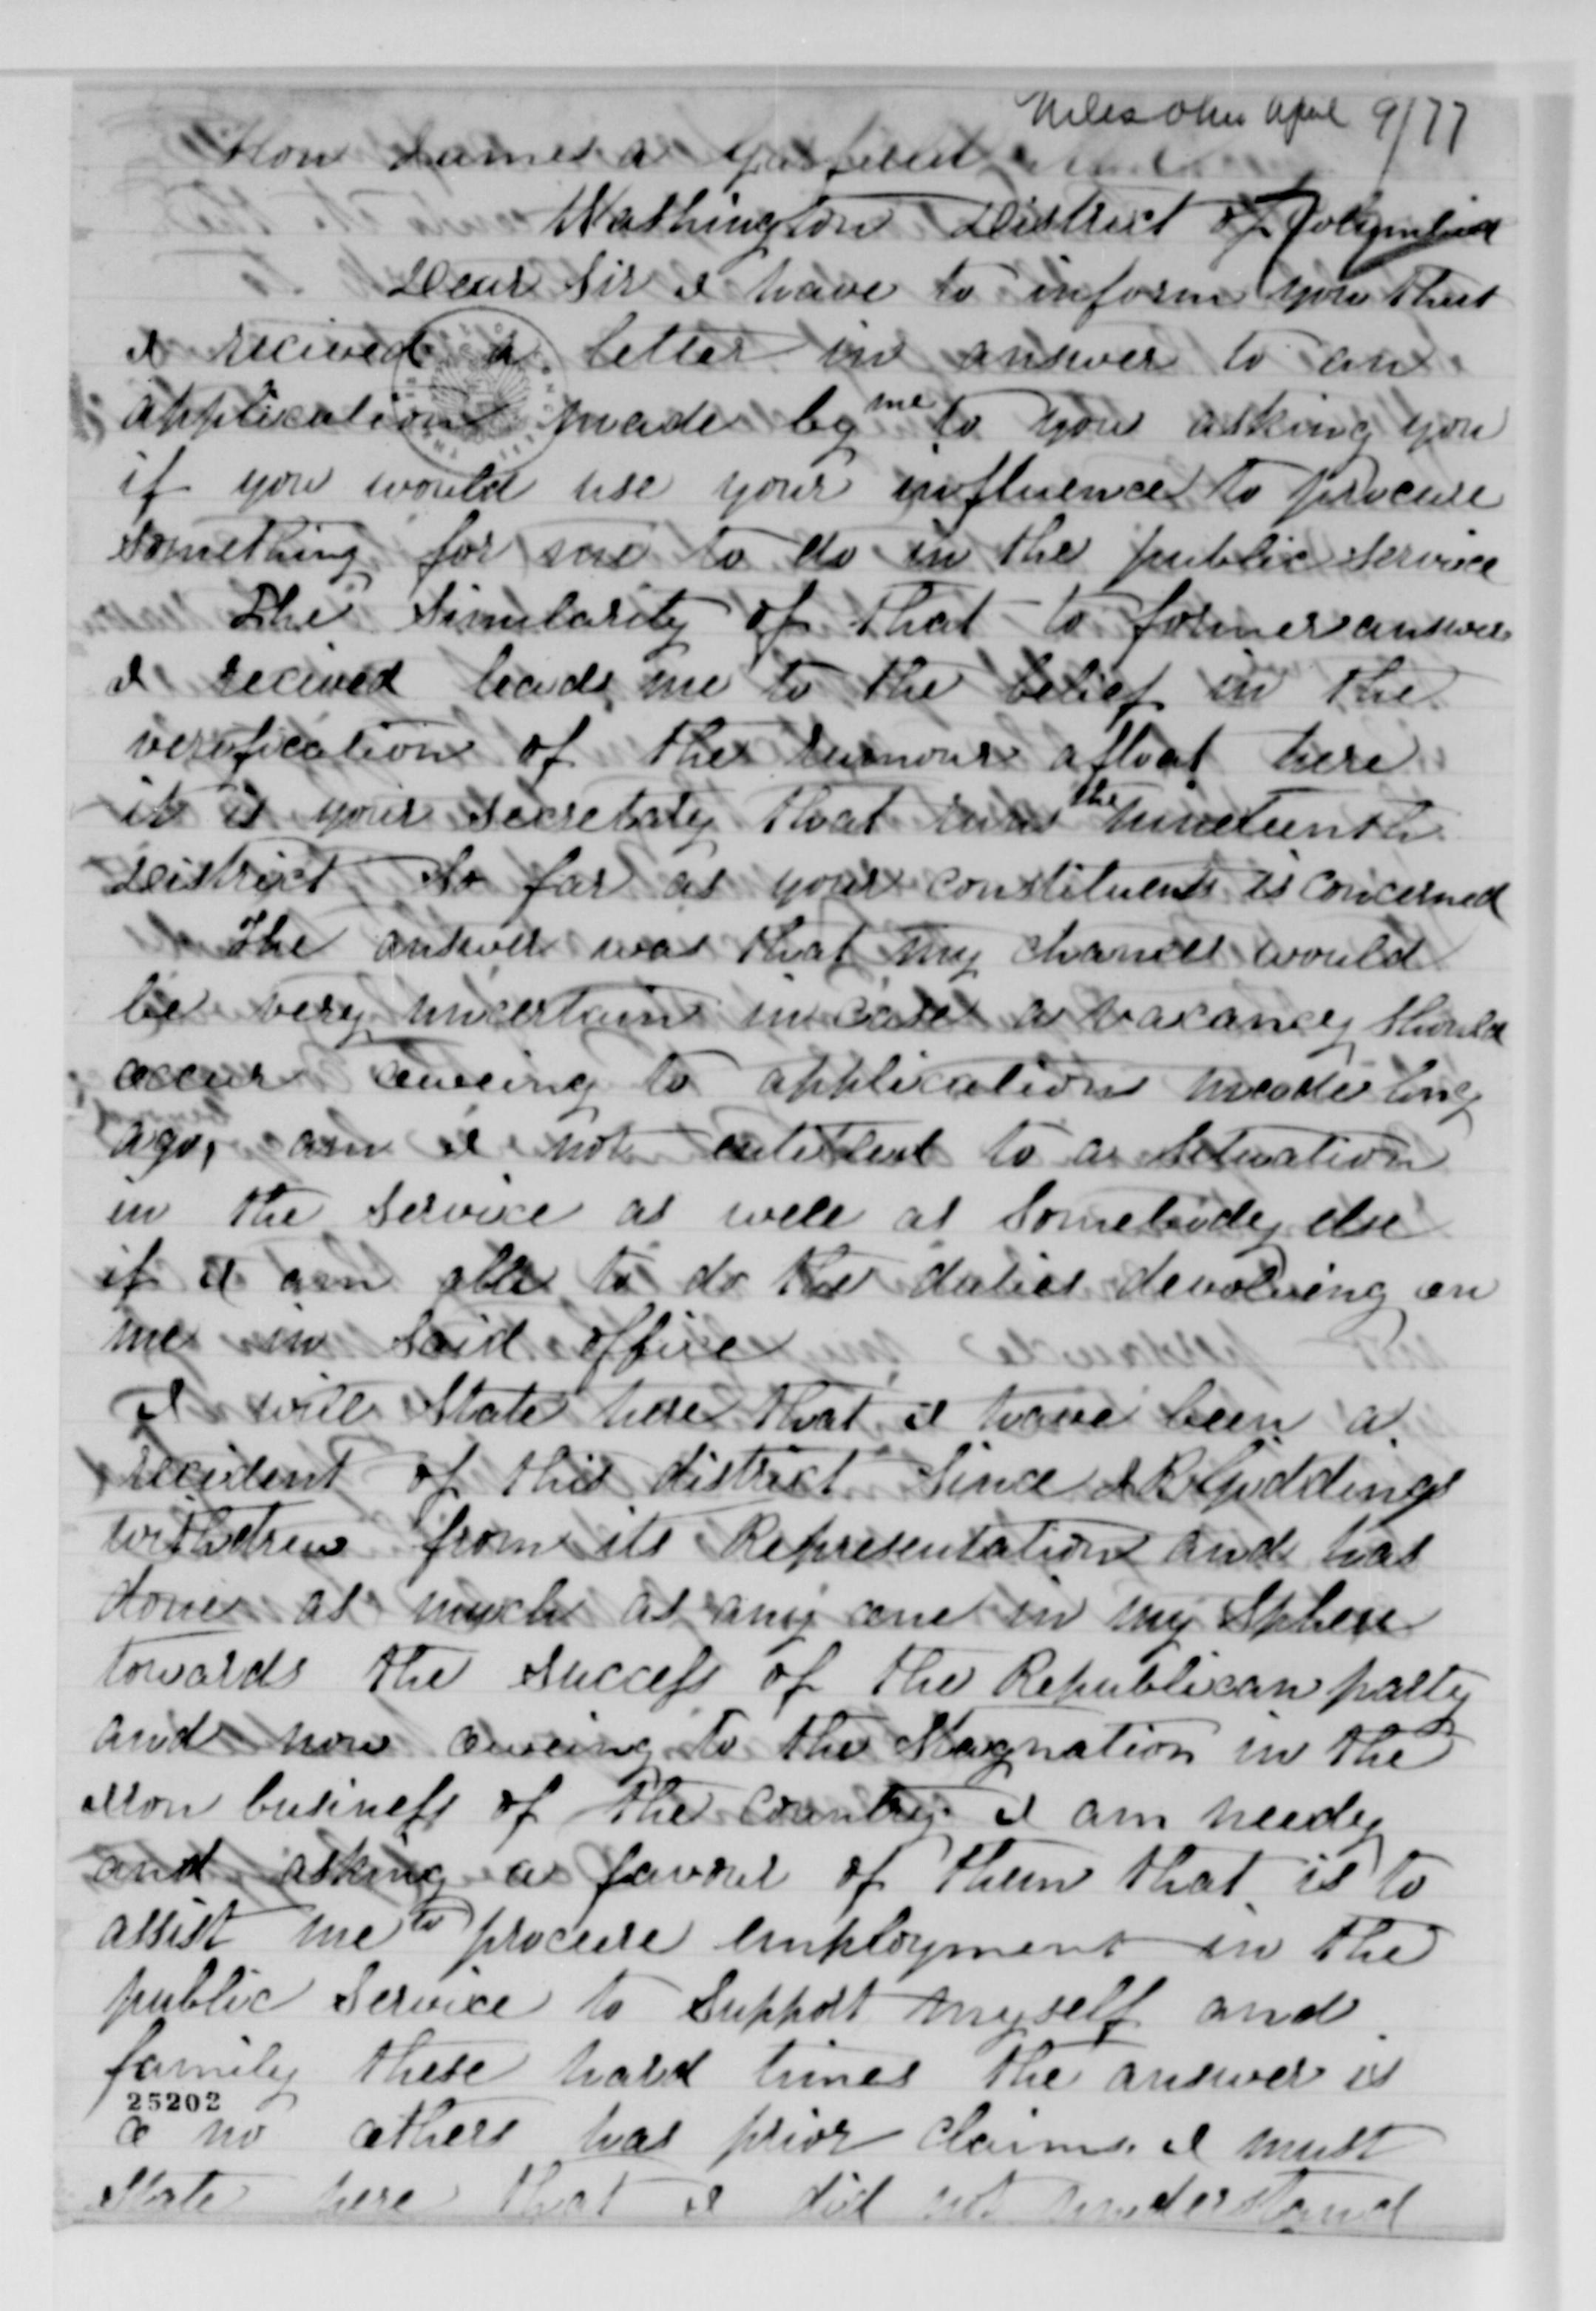 Niles Ohio April 9/77
Hon James A Garfield
Washington District of Columbia
Dear Sir I have to inform you that
I recieved a letter in answer to an
application made by me to you asking you
if you would use your influence to procure
something for me to do in the public service
The Similarity of that to former answers
I recieved leads me to the belief in the
verification of the rumours afloat here
it is your secretary that runs the nineteenth
District So far as your constituents is concerned
The answer was that my chances would
be very uncertain in case a vacancy should
occur oweing to applications made long
ago, am I not entitled to a Situation
in the Service as well as Somebody else
if I am able to do the duties devolving on
me in Said office
I will State here that I have been a
recident of this district Since J R Giddings
withdrew from its Representation and has
done as much as any one in my Sphere
towards the success of the Republican party
and now oweing to the Stagnation in the
Iron business of the Country I am needy
and asking a favour of them that is to
assist me to procure employment in the
public Service to Support myself and
family these hard times the answer is
25202
O no others has prior claims. I must
State here that I did not understand